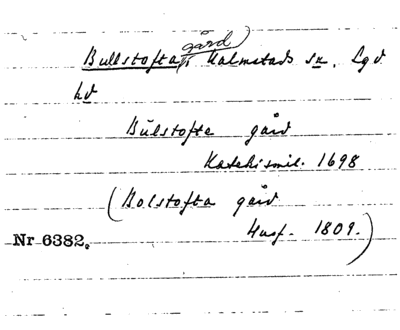 gård
Bullstofta, Kalmstads sn. Lgd.
hd
Bülstofte gård
Katekismil. 1698
(Bolstofta gård
Husf. 1809.)
Nr 6382.